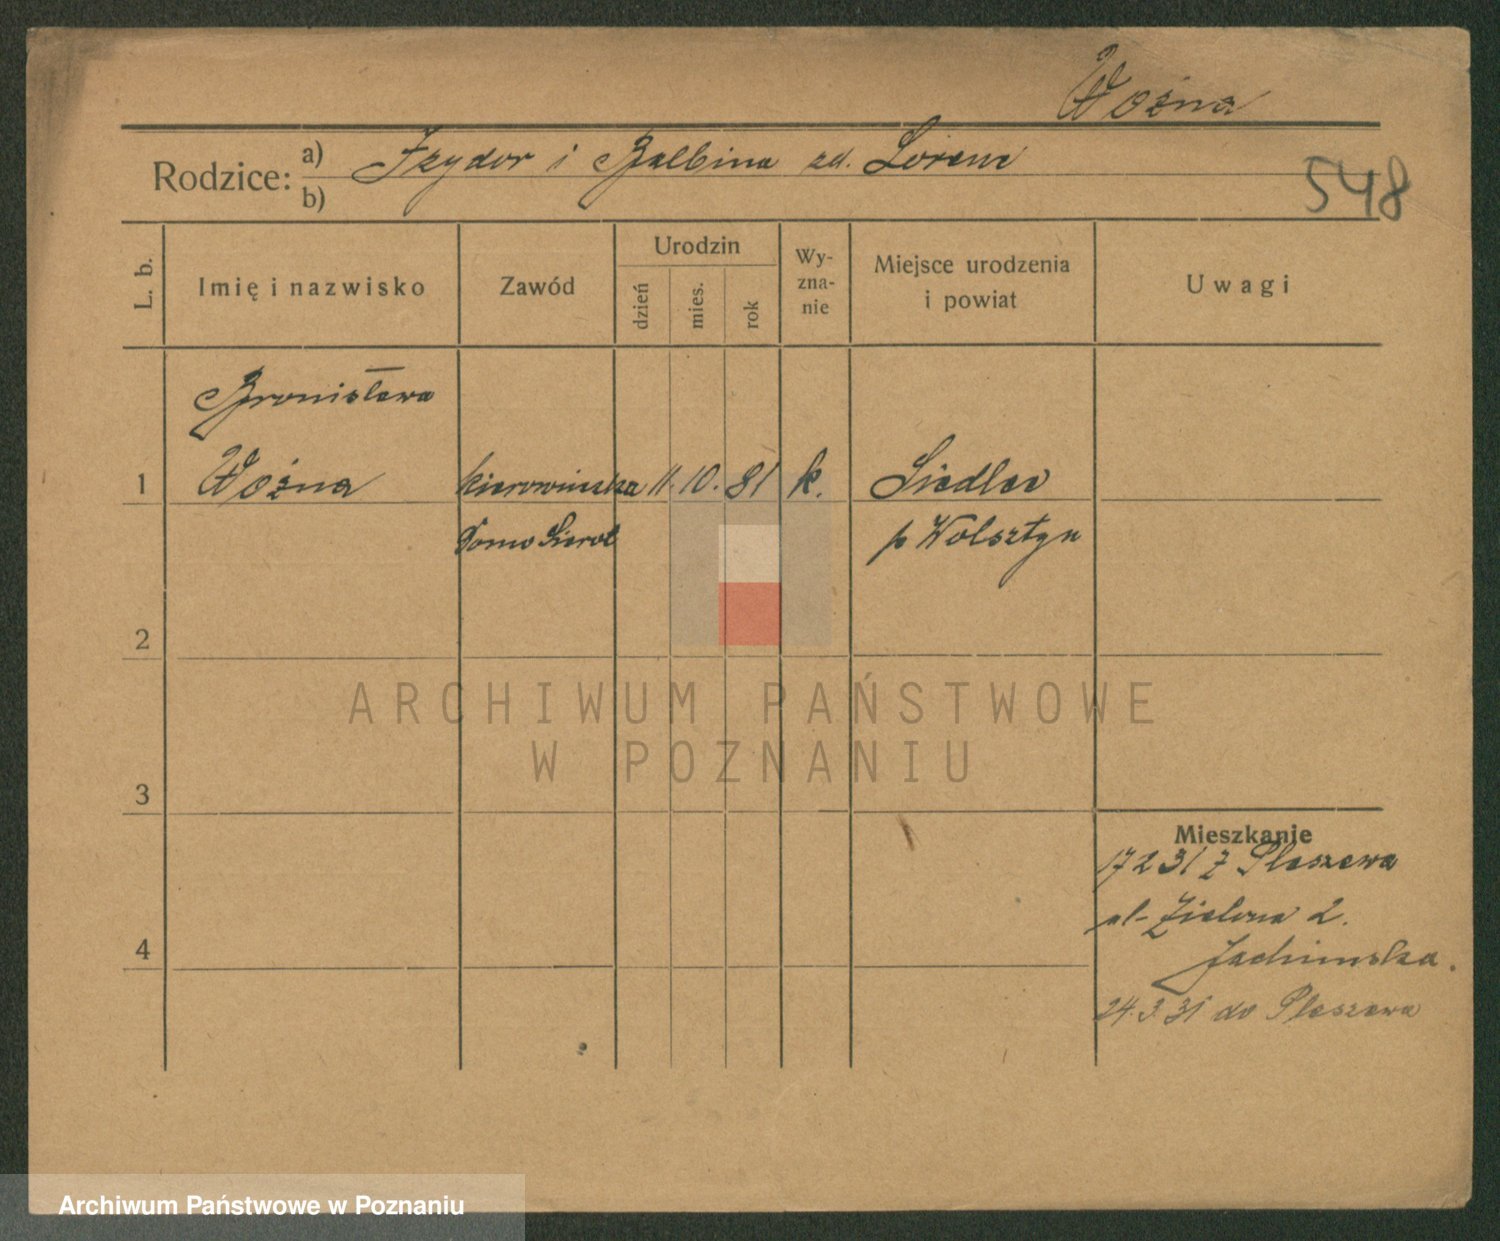 Woźna
Rodzice: a) Izydor i Balbina zd. Lorenc
b)
548
L. b.
Imię i nazwisko
Zawód
Urodzin
dzień
mies.
rok
Wy-
zna-
nie
Miejsce urodzenia
i powiat
Uwagi
Bronisława
1 Woźna kierowniczka 11. 10. 81 k. Siedlec
Domu Sierot p Wolsztyn
2
ARCHIWUM PAŃSTWOWE
W POZNANIU
3
Mieszkanie
17 2 31 z Pleszewa
ul- Zielona 2.
4
24.3.31 do Pleszewa
Archiwum Państwowe w Poznaniu